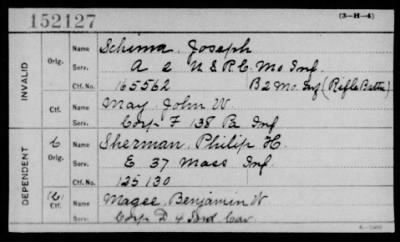 152127
(3-H-4)
INVALID
Orig.
Name Schima, Joseph
Serv. A & U S R C Mo Inf
Ctf. No. 165562 B 2 Mo. Inf (Rifle Battn)
Ctf.
Name May, John W.
Serv. Corp F 138 Pa Inf
DEPENDENT
C
Orig.
Name Sherman, Philip H.
Serv. E 37 Mass Inf
Ctf. No. 125130
(C)
Ctf.
Name Magee, Benjamin W
Serv. Corp D 4 Ind Cav